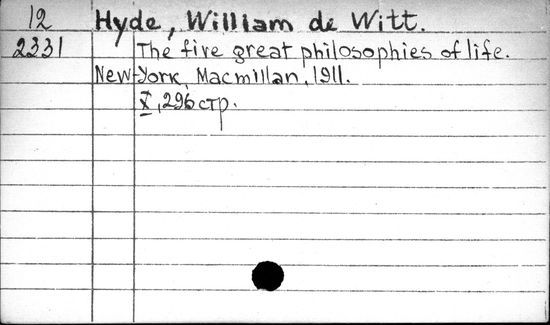 12 Hyde, William de Witt.
2331 The five great philosophies of life.
New-York, Macmillan, 1911.
X, 296 стр.